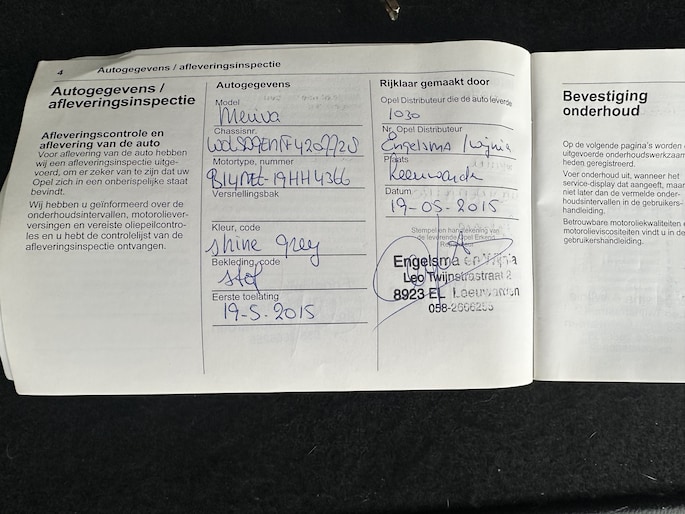 4 Autogegevens / afleveringsinspectie
Autogegevens /
afleveringsinspectie
Afleveringscontrole en
aflevering van de auto
Voor aflevering van de auto hebben
wij een afleveringsinspectie uitge-
voerd, om er zeker van te zijn dat uw
Opel zich in een onberispelijke staat
bevindt.
Wij hebben u geïnformeerd over de
onderhoudsintervallen, motoroliever-
versingen en vereiste oliepeilcontro-
les en u hebt de controlelijst van de
afleveringsinspectie ontvangen.
Autogegevens
Model
Meriva
Chassisnr.
Motortype, nummer
Versnellingsbak
Kleur, code
shine grey
Bekleding, code
stof
Eerste toelating
19-5-2015
Rijklaar gemaakt door
Opel Distributeur die de auto leverde
1030
Nr. Opel Distributeur
Engelsma / Wijnia
Plaats
Leeuwarden
Datum
19-05-2015
Stempel en handtekening van
de leverende Opel Erkend
Engelsma en Wijnia
Leo Twijnstrastraat 2
8923 EL Leeuwarden
058-2666255
Bevestiging
onderhoud
Op de volgende pagina's worden
uitgevoerde onderhoudswerkzaam
heden geregistreerd.
Voer onderhoud uit, wanneer het
service-display dat aangeeft, maar
niet later dan de vermelde onder-
houdsintervallen in de gebruikers-
handleiding.
Betrouwbare motoroliekwaliteiten
motorolieviscositeiten vindt u in de
gebruikershandleiding.